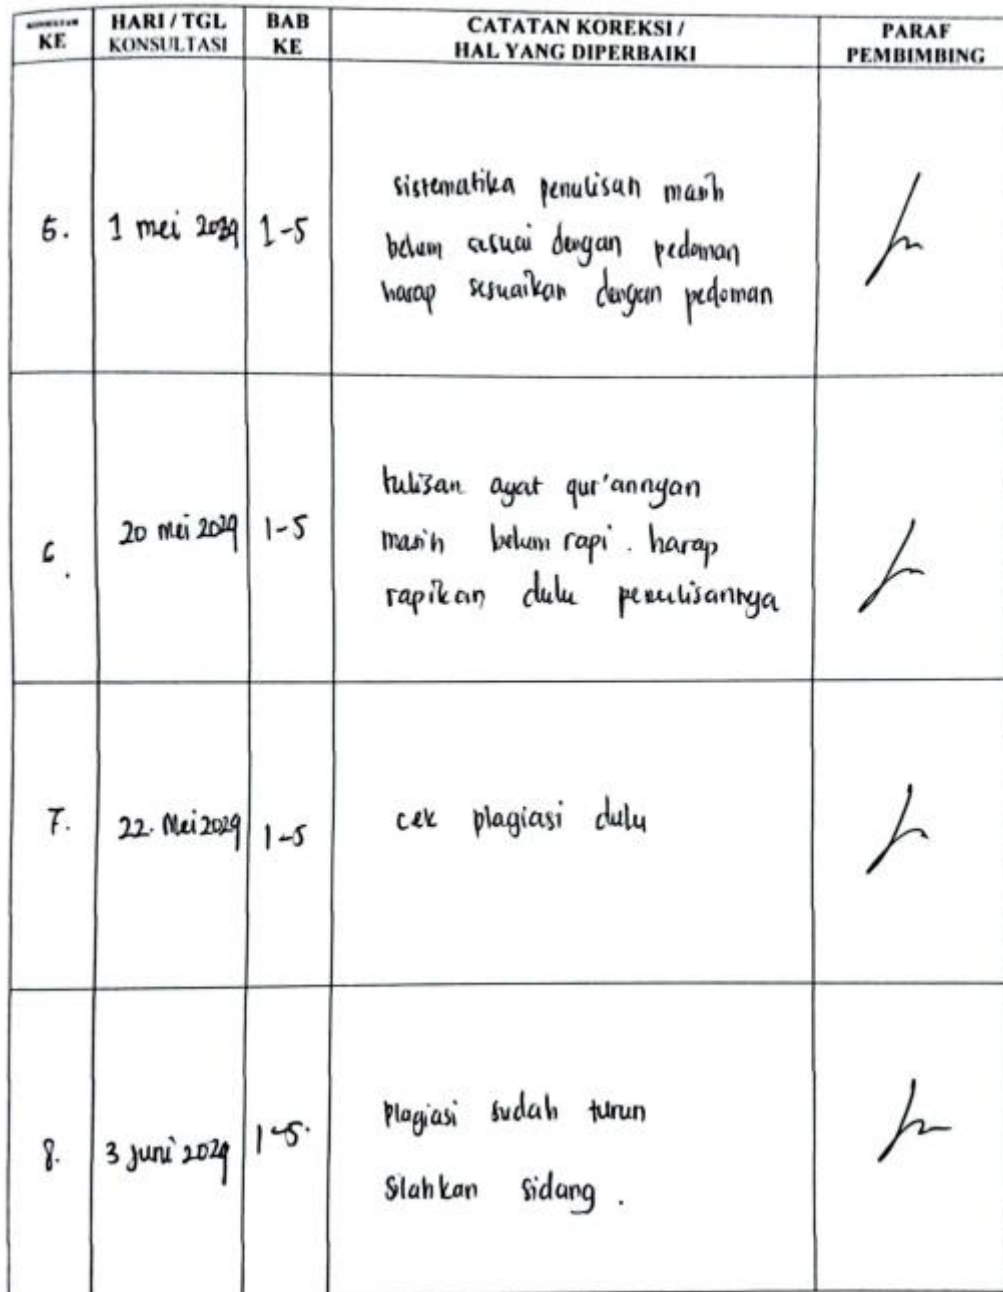 KE
HARI / TGL
KONSULTASI
BAB
KE
CATATAN KOREKSI /
HAL YANG DIPERBAIKI
PARAF
PEMBIMBING
5.
1 mei 2024
1-5
sistematika penulisan masih
belum sesuai dengan pedoman
harap sesuaikan dengan pedoman
6.
20 mei 2024
1-5
tulisan ayat qur'annyan
masih belum rapi. harap
rapikan dulu penulisannya
7.
22. Mei 2024
1-5
cek plagiasi dulu
8.
3 juni 2024
1-5.
plagiasi sudah turun
Silahkan sidang.